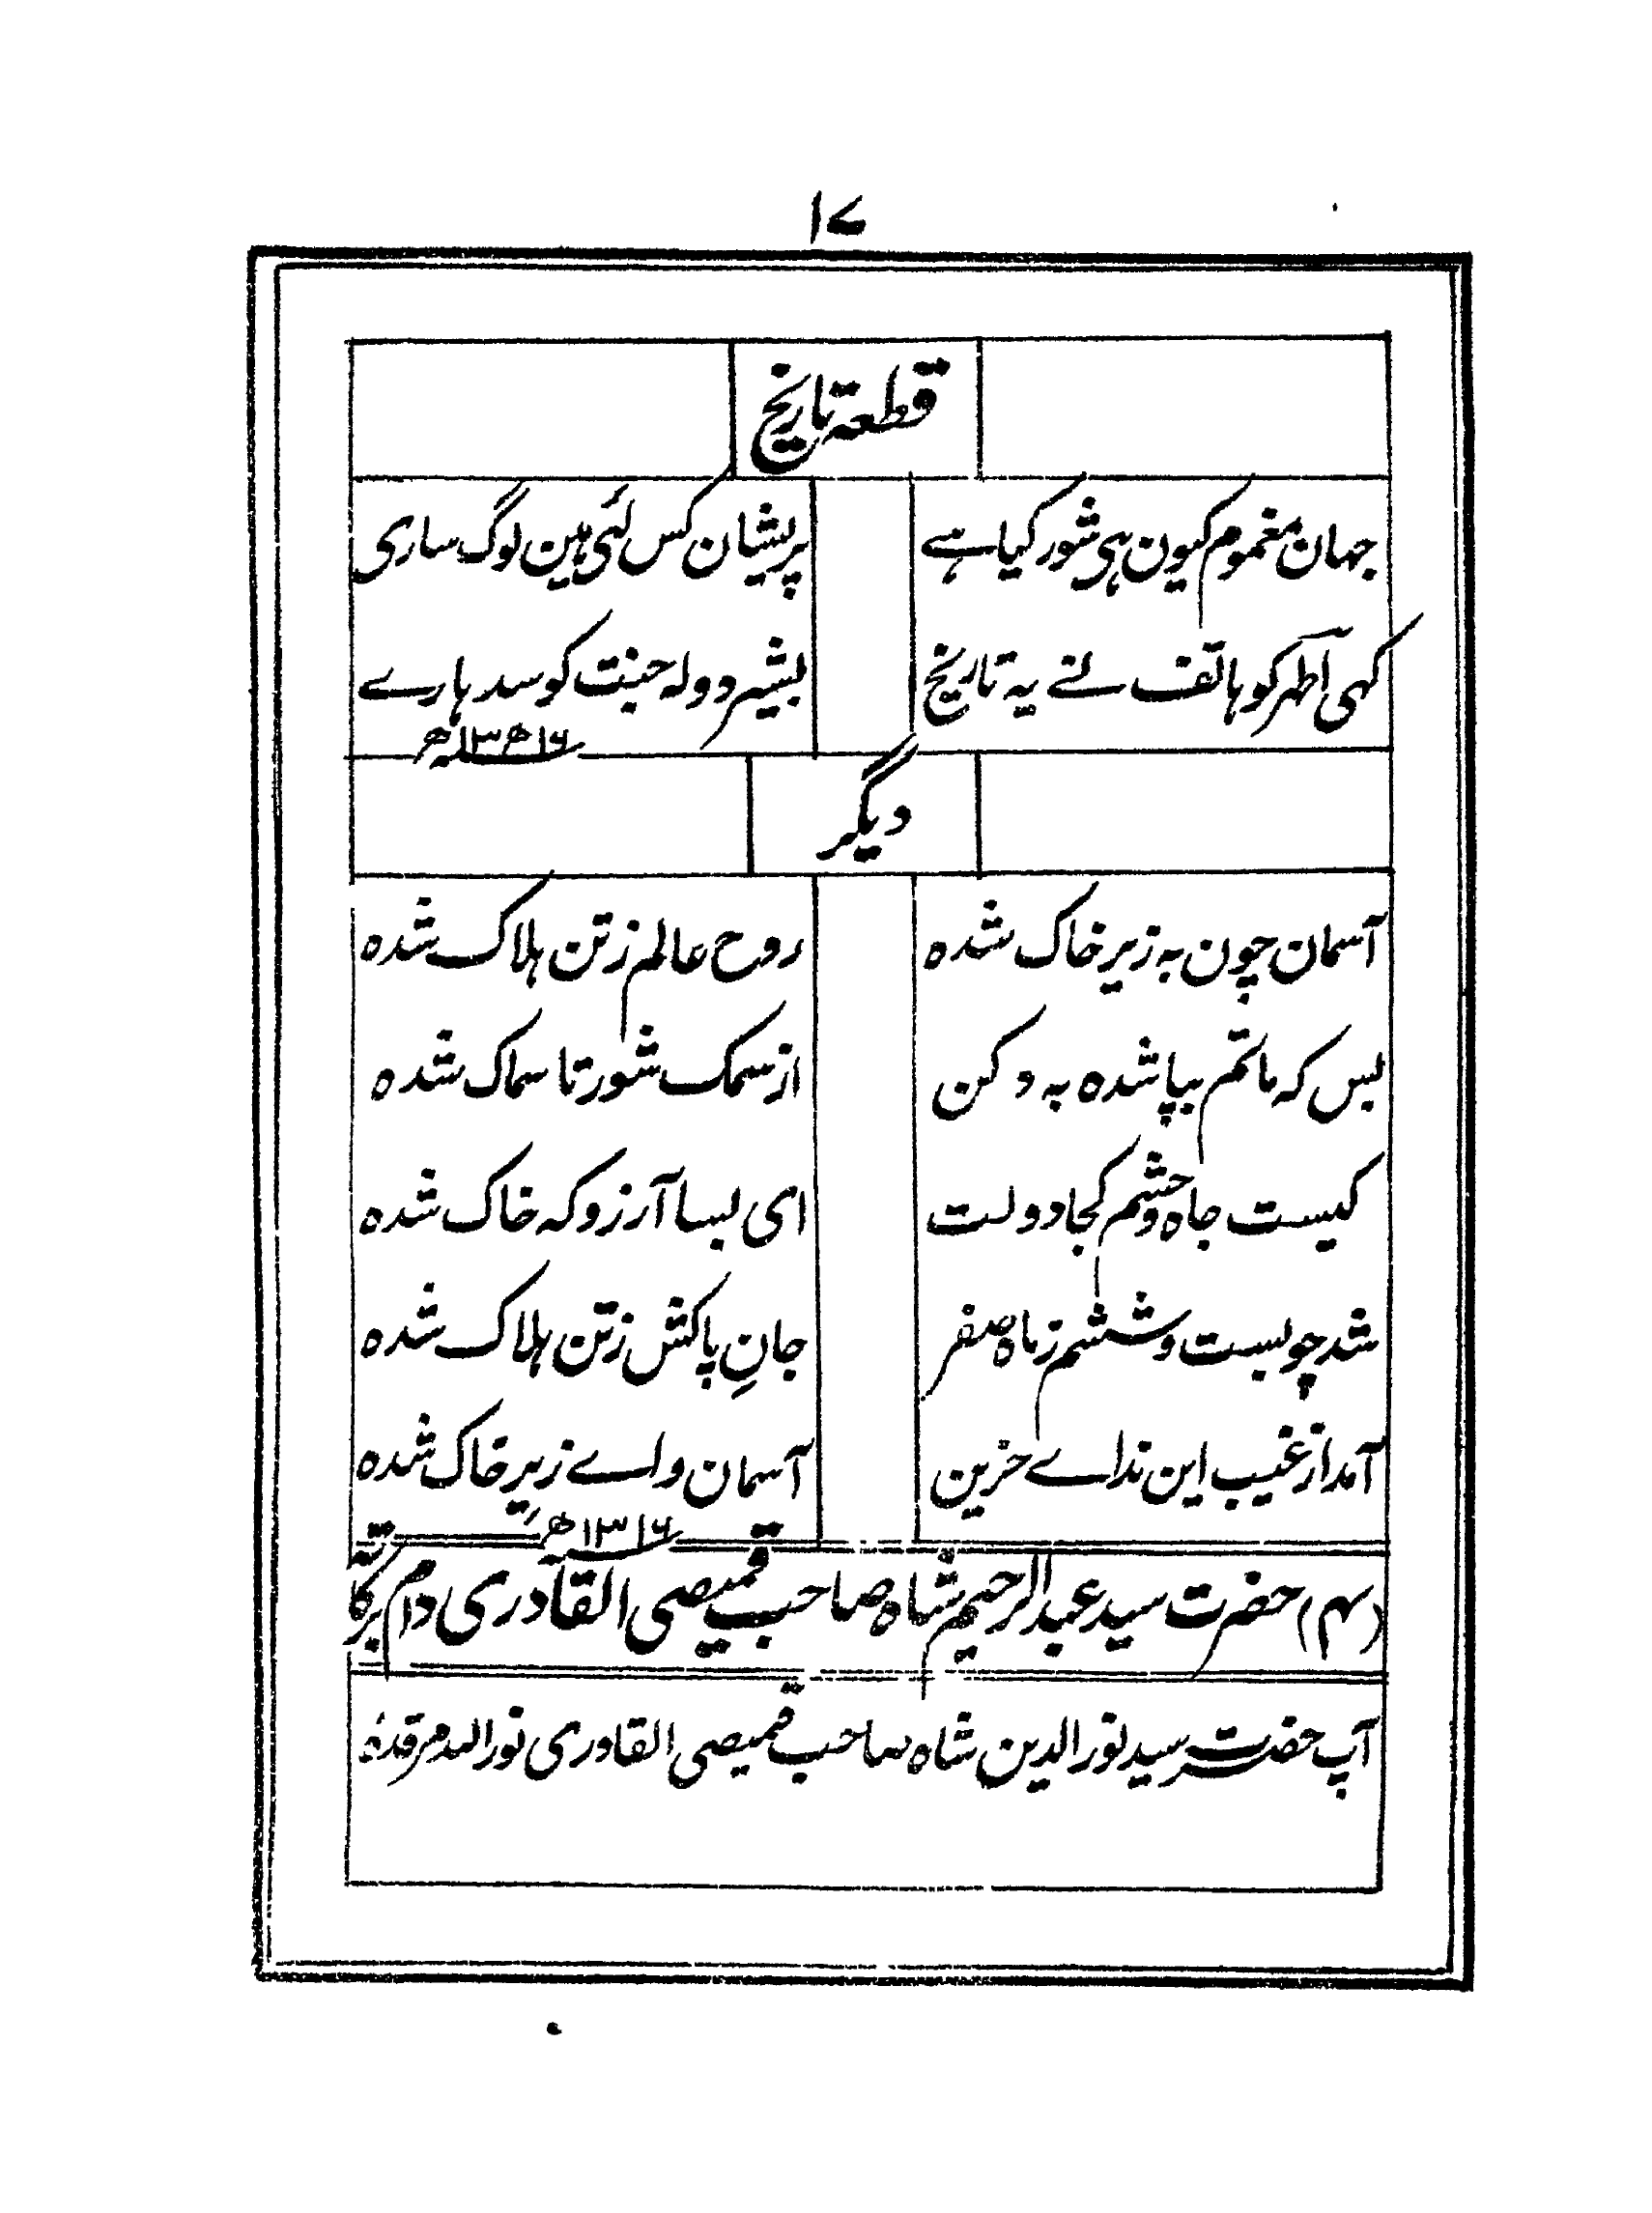 ۱۷
قطعہ تاریخ
جہان مغموم کیون ہی شور کیا ہے پریشان کس لئی ہین لوگ ساری
کہی آطہر کو ہاتف نے یہ تاریخ بشیر دولہ جنت کو سدہارے
۱۳۱۶ھ
دیگر
آسمان چون بہ زیر خاک شدہ روح عالم ز تن ہلاک شدہ
بس کہ ماتم بپا شدہ بہ دکن از سمک شور تا سماک شدہ
کیست جاہ و حشم کجا دولت ای بسا آرزو کہ خاک شدہ
شد چو بست و ششم ز ماہ صفر جانِ پاکش ز تن ہلاک شدہ
آمد از غیب این نداے حزین آسمان واے زیرِ خاک شدہ
۱۳۱۶ھ
(۴) حضرت سید عبدالرحیم شاہ صاحب قمیصی القادری دام برکاتہ
آپ حضرت سید نور الدین شاہ صاحب قمیصی القادری نور اللہ مرقدہٗ